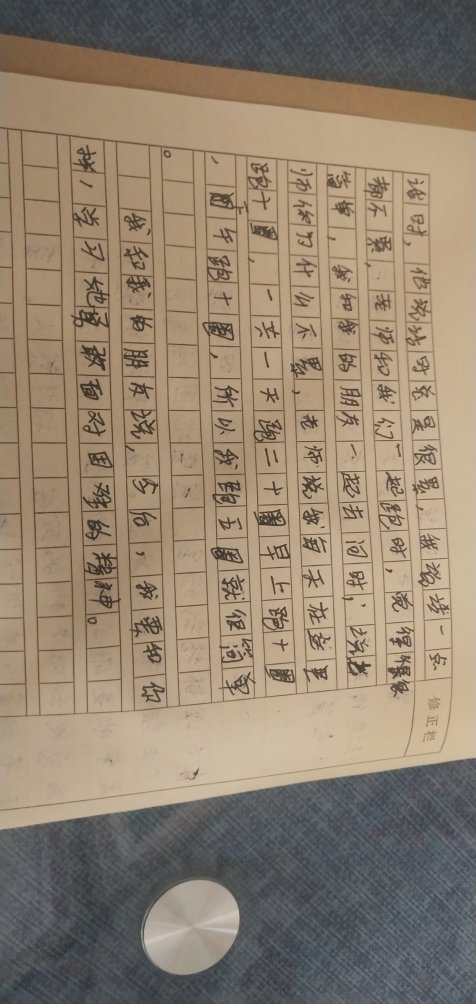 说时，他说我可总是很累，我说我一点
都不累，老师和我们一起跑时，觉得很
简单，我和我的朋友一起去问时，说老
师你们什么不累，老师说我每天在这里
跑十圈，一共一天跑二十圈早上跑十圈
，下午跑十圈，所以我跑五圈就很简单
。
我和我的朋友说，今后，我要和你
一样，学习他勇敢面对困难的精神。
修正栏